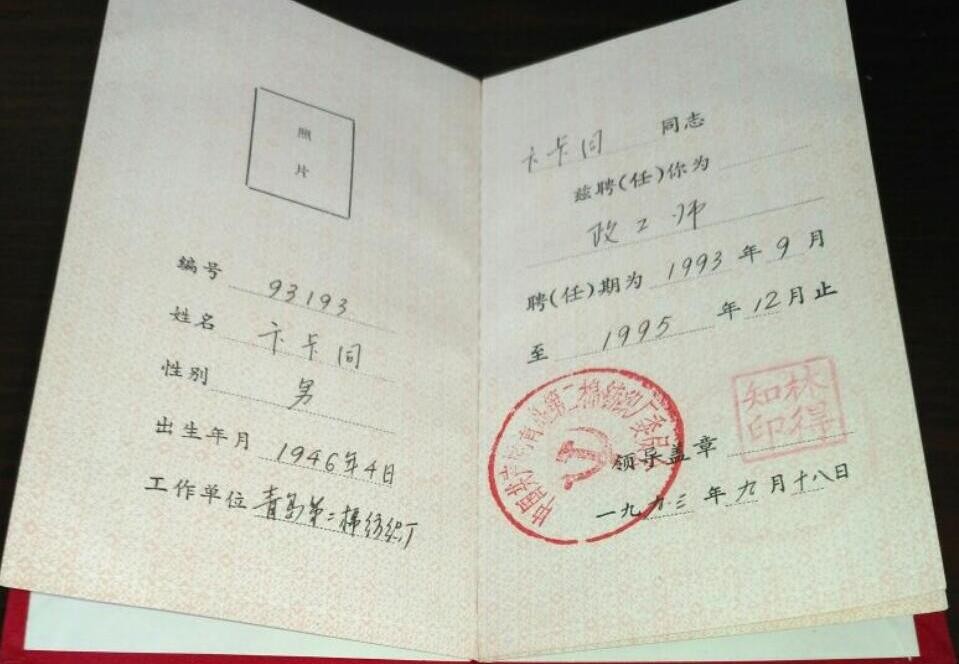 照
片
编号 93193
姓名 卞卡同
性别 男
出生年月 1946年4日
工作单位 青岛第二棉纺织厂
卞卡同 同志
兹聘(任)你为
政工师
聘(任)期为 1993 年 9 月
至 1995 年 12 月止
中国共产党青岛第二棉纺织厂委员会
林得
知印
领导盖章
一九九三年九月十八日